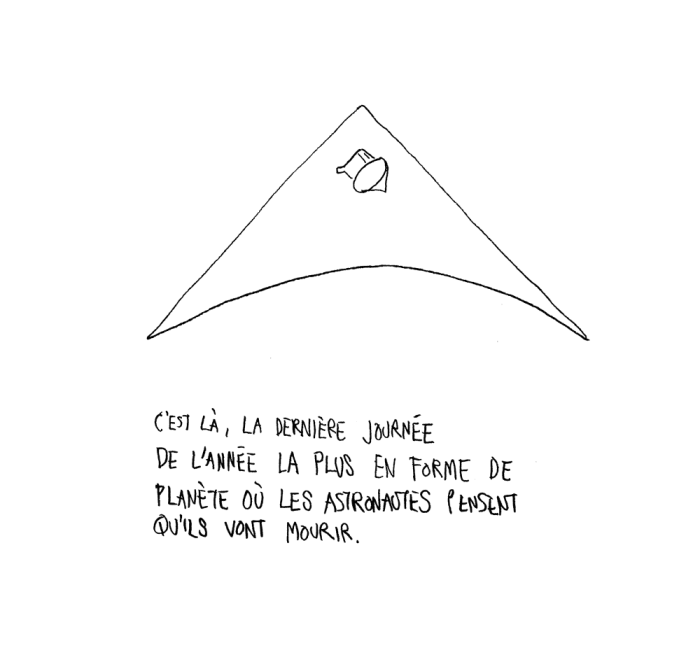 C'EST LÀ, LA DERNIÈRE JOURNÉE
DE L'ANNÉE LA PLUS EN FORME DE
PLANÈTE OÙ LES ASTRONAUTES PENSENT
QU'ILS VONT MOURIR.